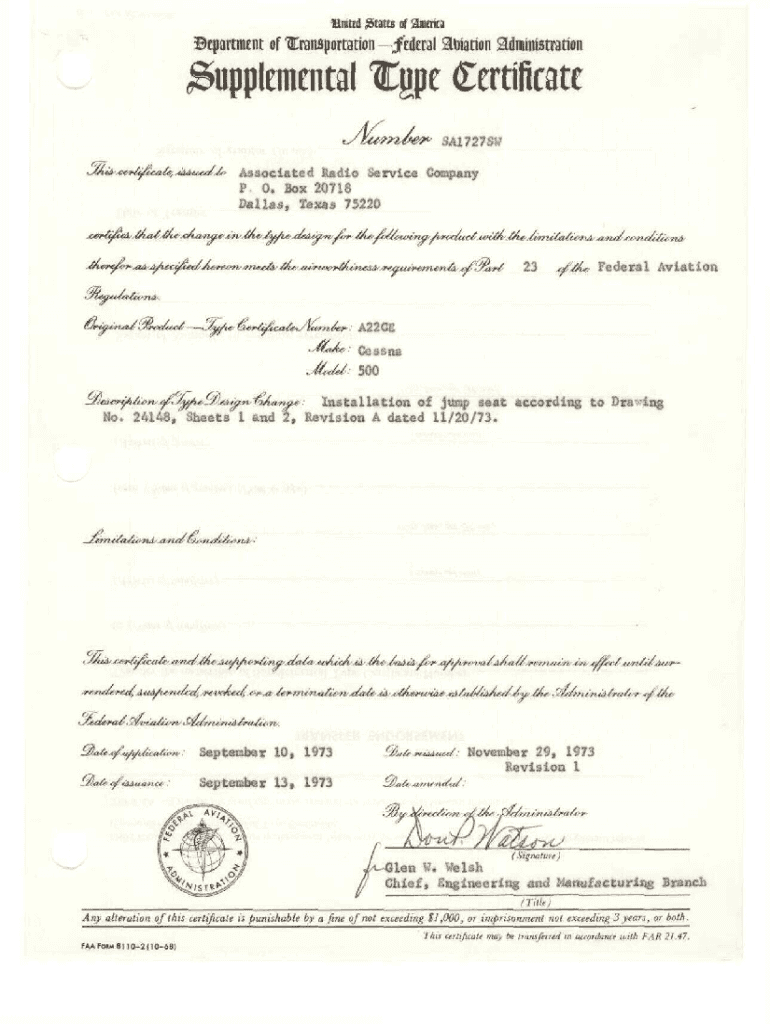 United States of America
Department of Transportation — Federal Aviation Administration
Supplemental Type Certificate
Number SA1727SW
This certificate, issued to Associated Radio Service Company
P. O. Box 20718
Dallas, Texas 75220
certifies that the change in the type design for the following product with the limitations and conditions
therefor as specified hereon meets the airworthiness requirements of Part 23 of the Federal Aviation
Regulations.
Original Product — Type Certificate Number: A22CE
Make: Cessna
Model: 500
Description of Type Design Change: Installation of jump seat according to Drawing
No. 24148, Sheets 1 and 2, Revision A dated 11/20/73.
Limitations and Conditions:
This certificate and the supporting data which is the basis for approval shall remain in effect until sur-
rendered, suspended, revoked, or a termination date is otherwise established by the Administrator of the
Federal Aviation Administration.
Date of application: September 10, 1973 Date reissued: November 29, 1973
Revision 1
Date of issuance: September 13, 1973 Date amended:
By direction of the Administrator
FEDERAL AVIATION
ADMINISTRATION
Don P. Watson
(Signature)
for Glen W. Welsh
Chief, Engineering and Manufacturing Branch
(Title)
Any alteration of this certificate is punishable by a fine of not exceeding $1,000, or imprisonment not exceeding 3 years, or both.
This certificate may be transferred in accordance with FAR 21.47.
FAA FORM 8110-2 (10-68)